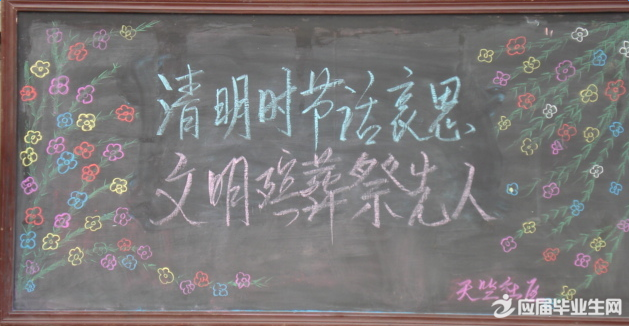 清明时节话哀思
文明殡葬祭先人
天竺社区
应届毕业生网